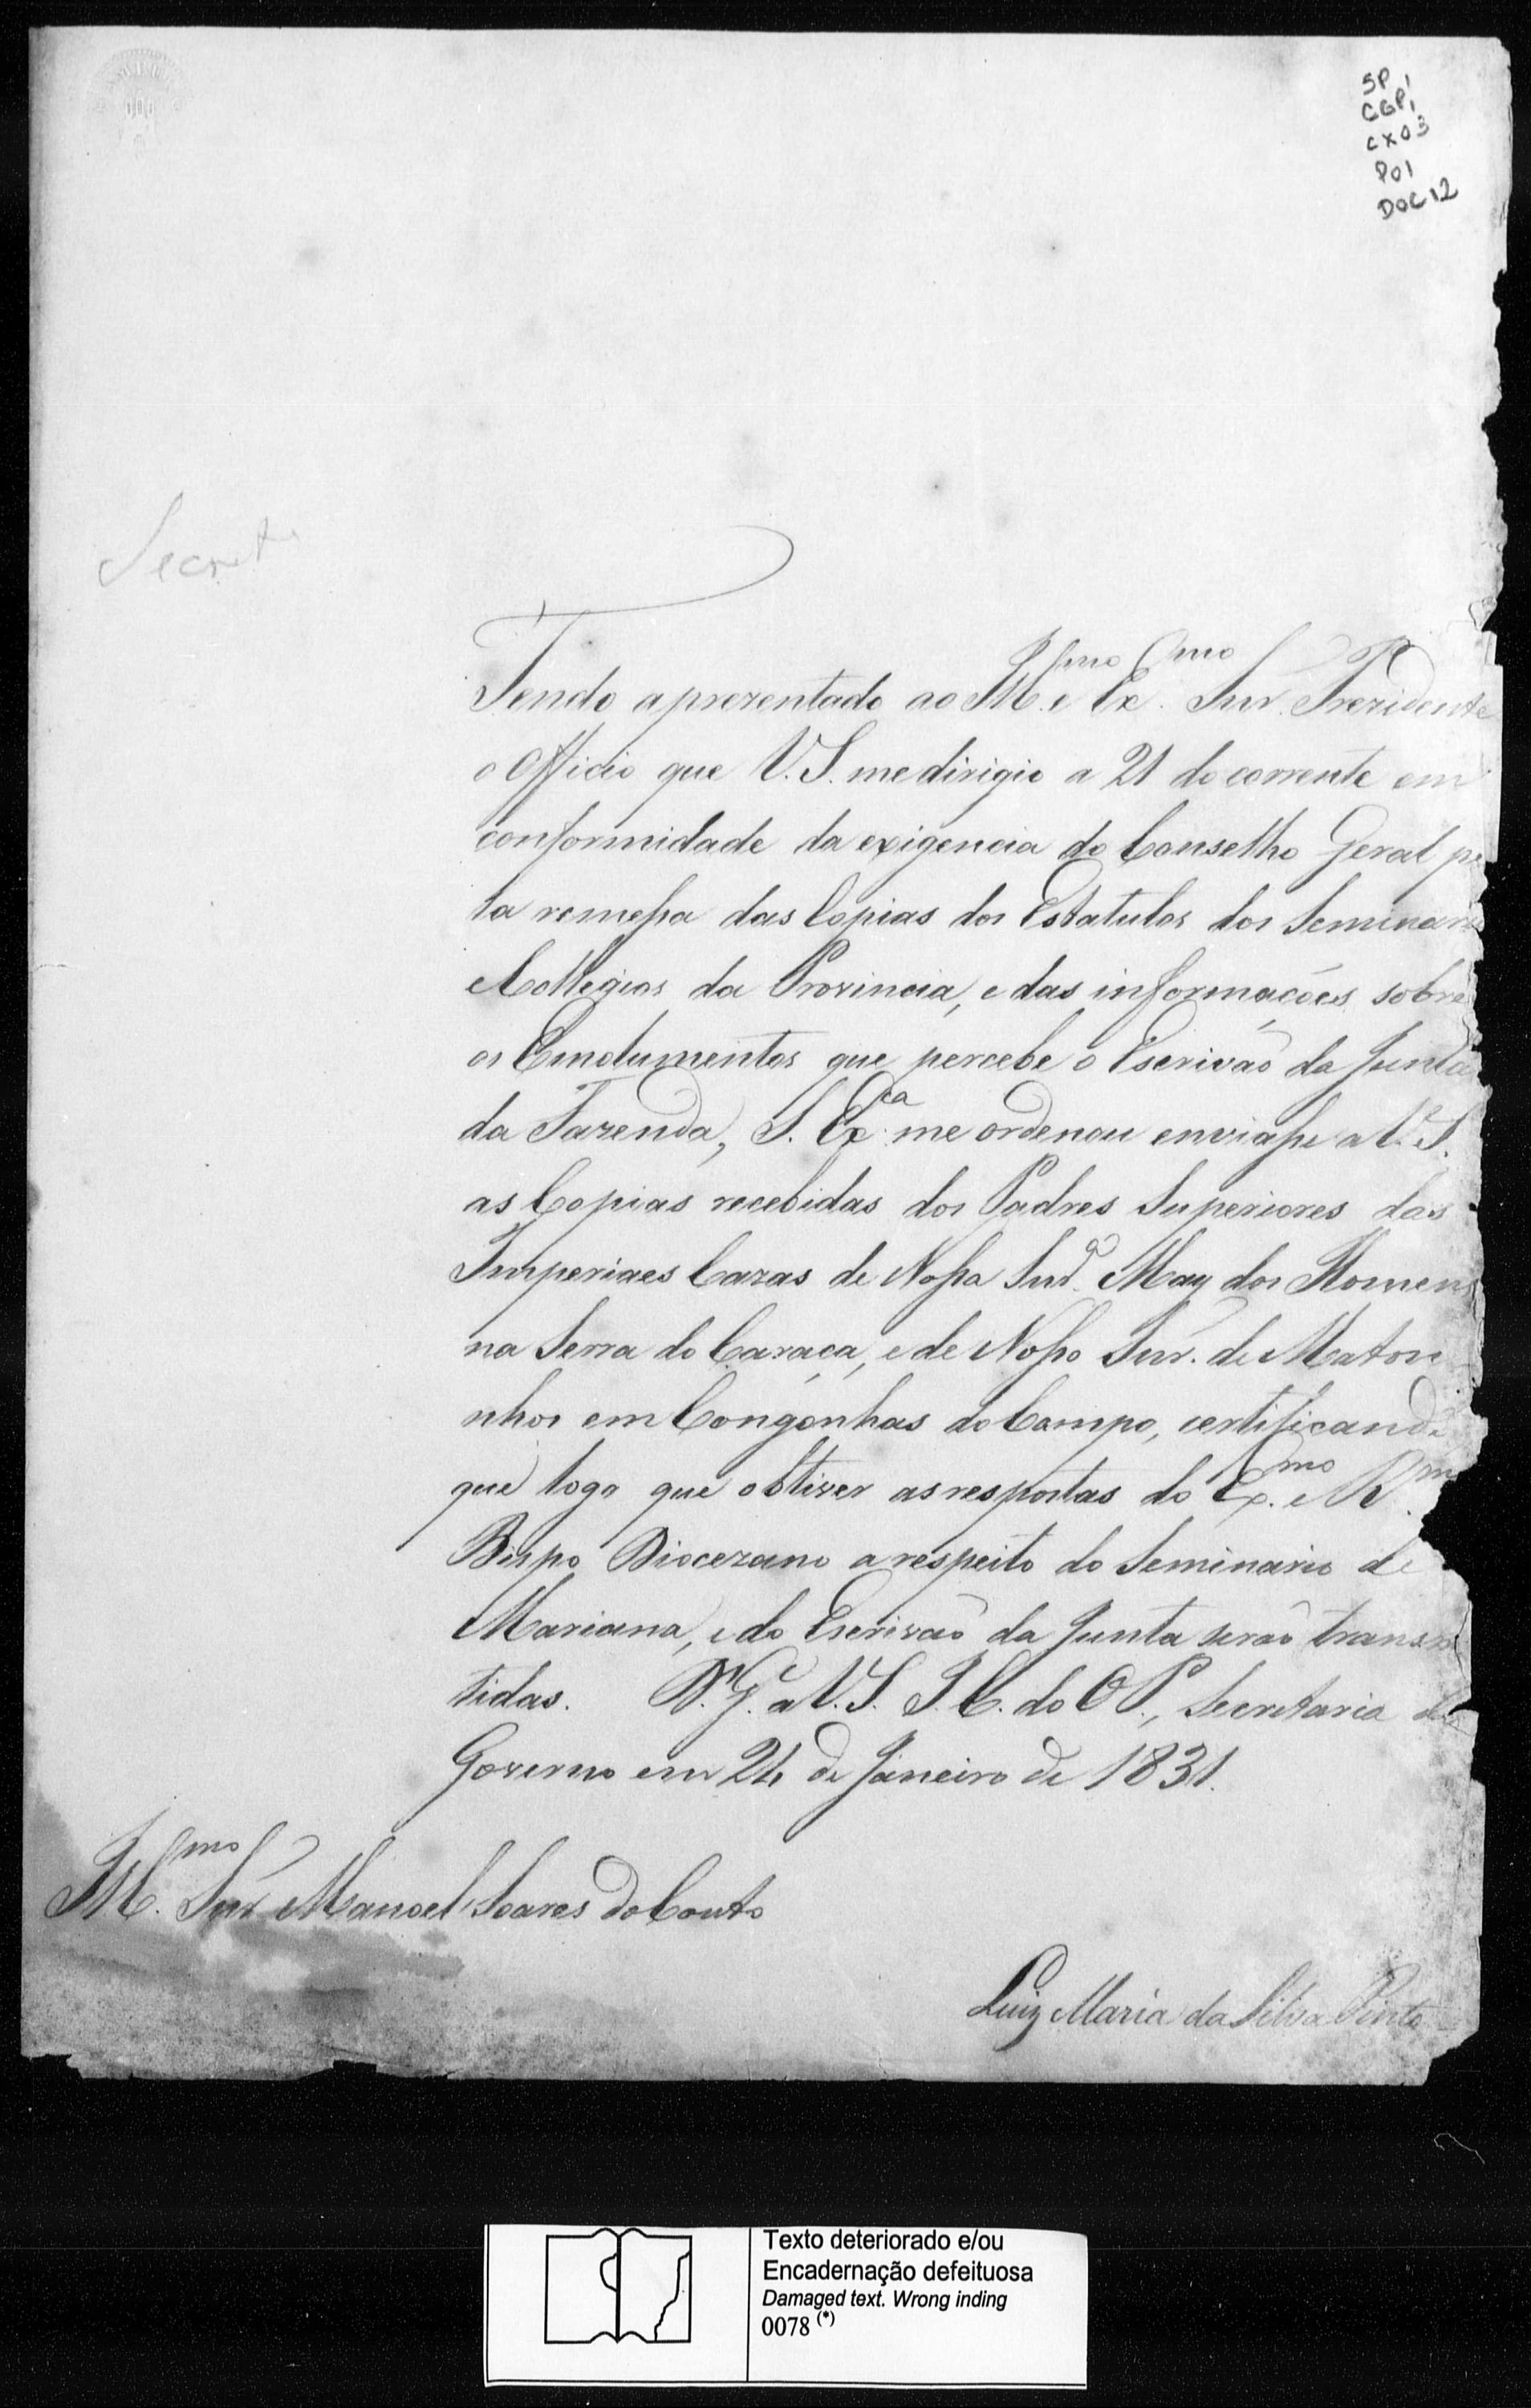 SP
CGP1
CX03
P01
DOC12
Secret
Tendo aprezentado ao Ill.mo e Ex.mo Snr. Prezidente
o Officio que V.S. me dirigio a 21 do corrente em
conformidade da exigencia do Conselho Geral pe
la remessa das Copias dos Estatutos dos Seminari
e Collegios da Provincia, e das informações sobre
os Emolumentos que percebe o Escrivão da Junta
da Fazenda, S. Ex.ca me ordenou enviasse a V.S.
as Copias recebidas dos Padres Superiores das
Imperiaes Cazas de Nossa Snr.a May dos Homens
na Serra do Caraça, e de Nosso Snr. de Matosi
nhos em Congonhas do Campo, certificando
que logo que obtiver as respostas do Ex.mo e R.mo
Bispo Diocezano a respeito do Seminario de
Mariana, e do Escrivão da Junta serão transm
tidas. D.s G.e a V.S. I.C. do O P., Secretaria do
Governo em 24 de Janeiro de 1831.
Ill.mo Snr. Manoel Soares do Couto
Luiz Maria da Silva Pinto
Texto deteriorado e/ou
Encadernação defeituosa
Damaged text. Wrong inding
0078 (*)